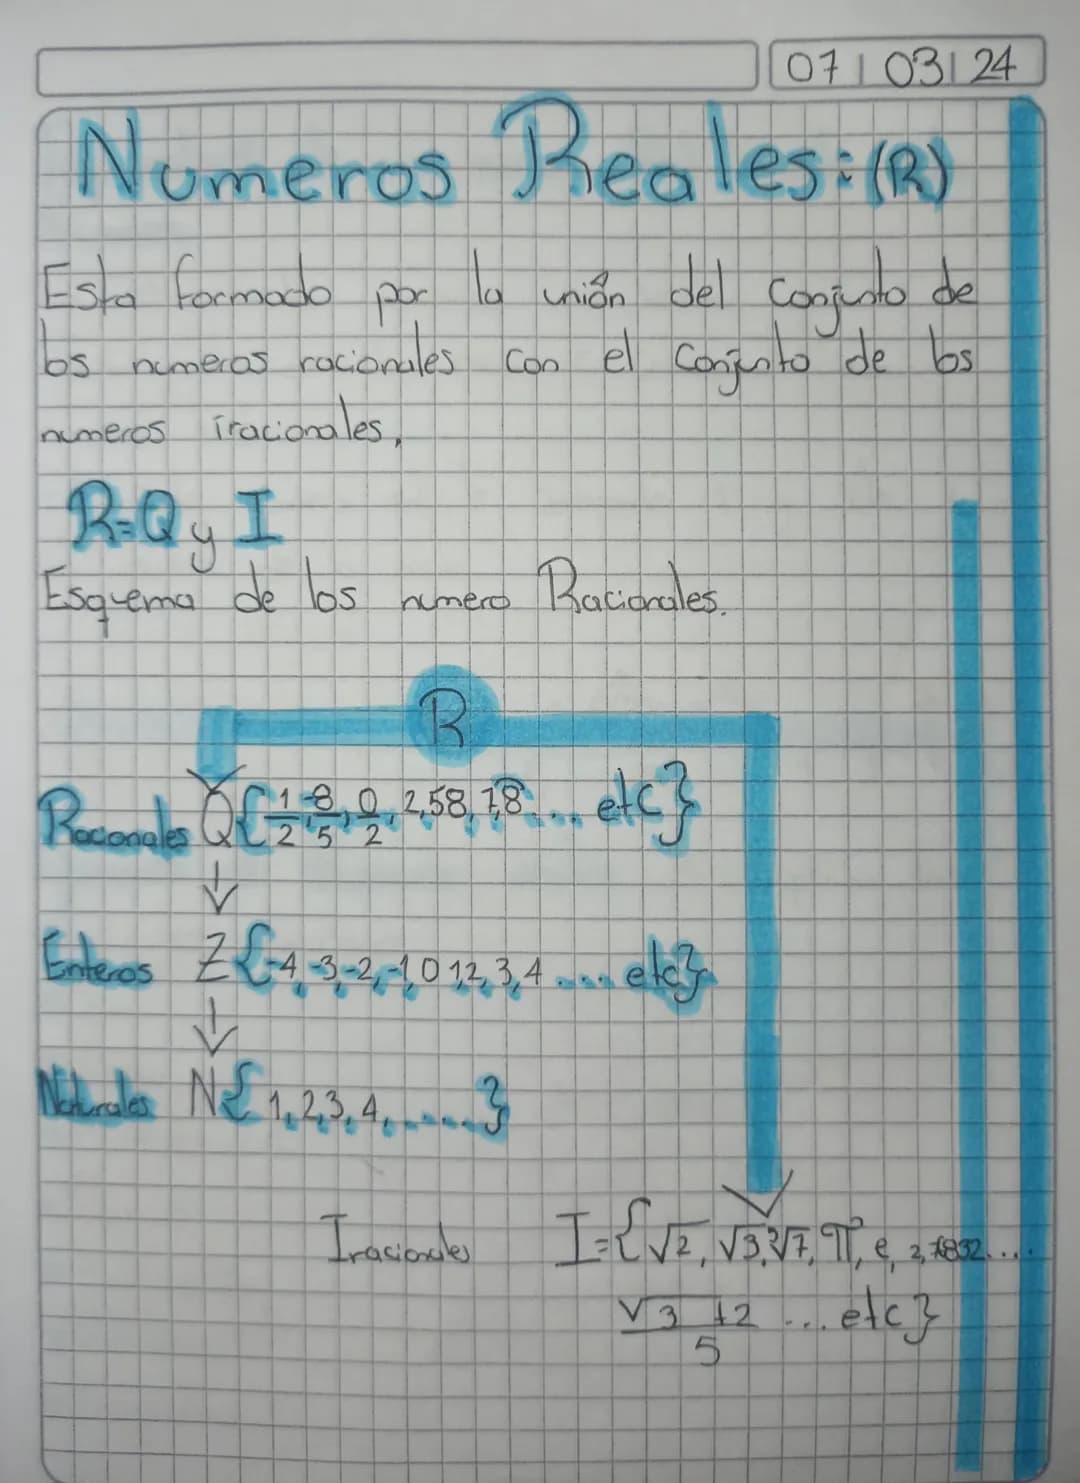 07 | 03 | 24
Numeros Reales: (R)
Esta formado por la unión del conjunto de
los numeros racionales con el conjunto de los
numeros iracionales,
R=Q y I
Esquema de los numero Racionales.
R
Racionales Q{1/2, -8/5, 0/2, 2,58, 7,8... etc}
Enteros Z{-4,-3,-2,-1,0 1,2,3,4 .... etc}
Naturales N{1,2,3,4,.....}
Iracionales I={√2, √3, ∛7, π, e,
√3 +2 / 5 ... etc}